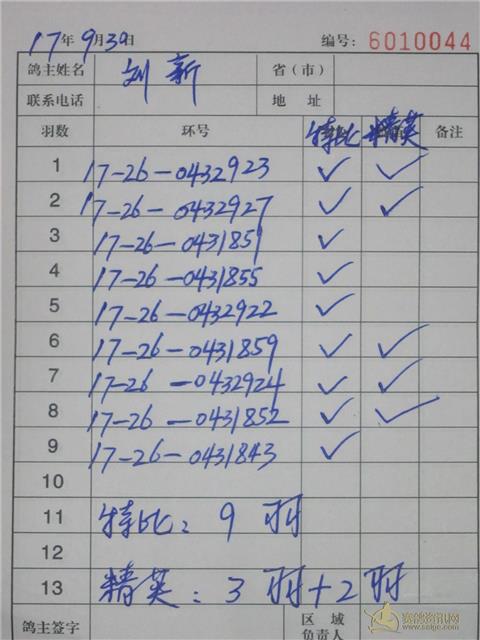 17年9月30 编号: 6010044
鸽主姓名 刘新 省(市)
联系电话 地址
羽数 环号 特比 精英 备注
1 17-26-0432923 ✓ ✓
2 17-26-0432927 ✓ ✓
3 17-26-0431851 ✓
4 17-26-0431855 ✓
5 17-26-0432922 ✓
6 17-26-0431859 ✓ ✓
7 17-26-0432924 ✓ ✓
8 17-26-0431852 ✓ ✓
9 17-26-0431843 ✓
10
11 特比: 9 羽
12
13 精英: 3 羽+2羽
鸽主签字 区域
负责人
赛鸽资讯网
www.saige.com